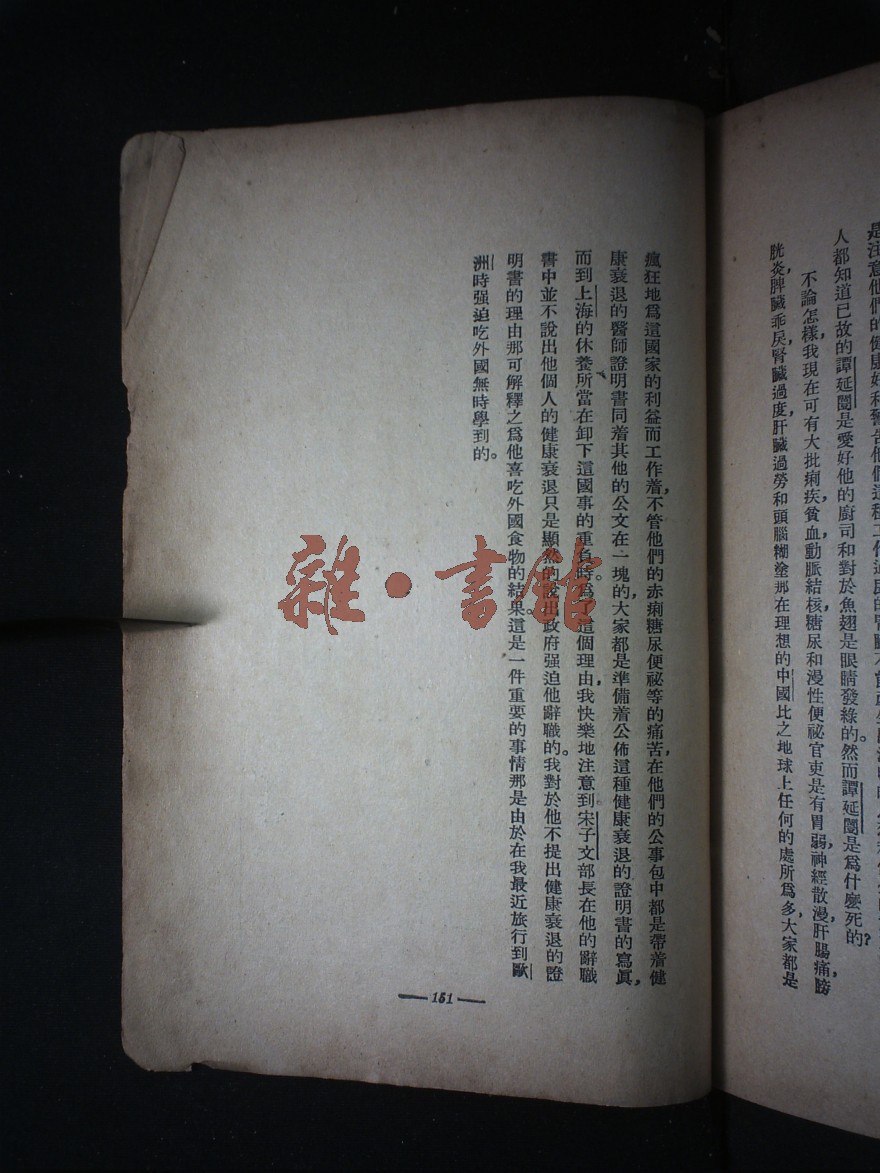 人都知道已故的譚延闓是愛好他的廚司和對於魚翅是眼睛發綠的。然而譚延闓是爲什麽死的?
不論怎樣,我現在可有大批痢疾,貧血,動脈結核,糖尿和漫性便祕官吏是有胃弱,神經散漫,肝腸痛,膀
胱炎,脾臟乖戾,腎臟過度,肝臟過勞和頭腦糊塗,那在理想的中國比之地球上任何的處所爲多,大家都是
瘋狂地爲這國家的利益而工作着,不管他們的赤痢糖尿便祕等的痛苦,在他們的公事包中都是帶着健
康衰退的醫師證明書同着其他的公文在一塊的,大家都是準備着公佈這種健康衰退的證明書的寫眞,
而到上海的休養所當在卸下這國事的重負時。爲了這個理由,我快樂地注意到宋子文部長在他的辭職
書中並不說出他個人的健康衰退只是顯然的說出政府强迫他辭職的。我對於他不提出健康衰退的證
明書的理由那可解釋之爲他喜吃外國食物的結果。這是一件重要的事情那是由於在我最近旅行到歐
洲時强迫吃外國無時學到的。
151
雜·書館